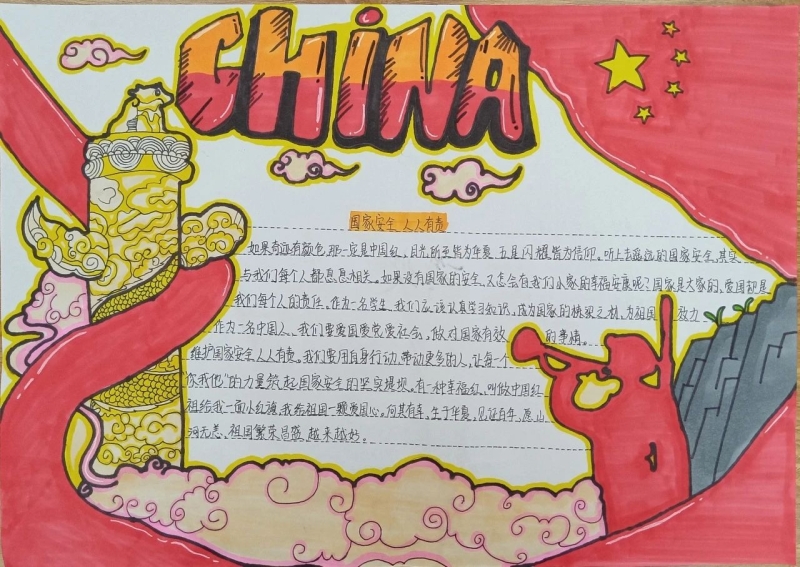 CHINA
国家安全 人人有责
如果奇迹有颜色,那一定是中国红。目光所至皆为华夏 五星闪耀皆为信仰。听上去遥远的国家安全,其实
与我们每个人都息息相关。如果没有国家的安全,又怎会有我们小家的幸福安康呢?国家是大家的,爱国都是
我们每个人的责任。作为一名学生,我们应该认真学习知识,成为国家的栋梁之材,为祖国 放力
作为一名中国人,我们要爱国爱党爱社会。做对国家有效 的事情。
维护国家安全人人有责。我们要用自身行动,带动更多的人,让每个
"你我他"的力量筑起国家安全的坚实堤坝。有一种幸福红,叫做中国红
祖给我一面小红旗,我给祖国一颗爱国心。何其有幸,生于华夏,见证百年,愿山
河无恙、祖国繁荣昌盛 越来越好。